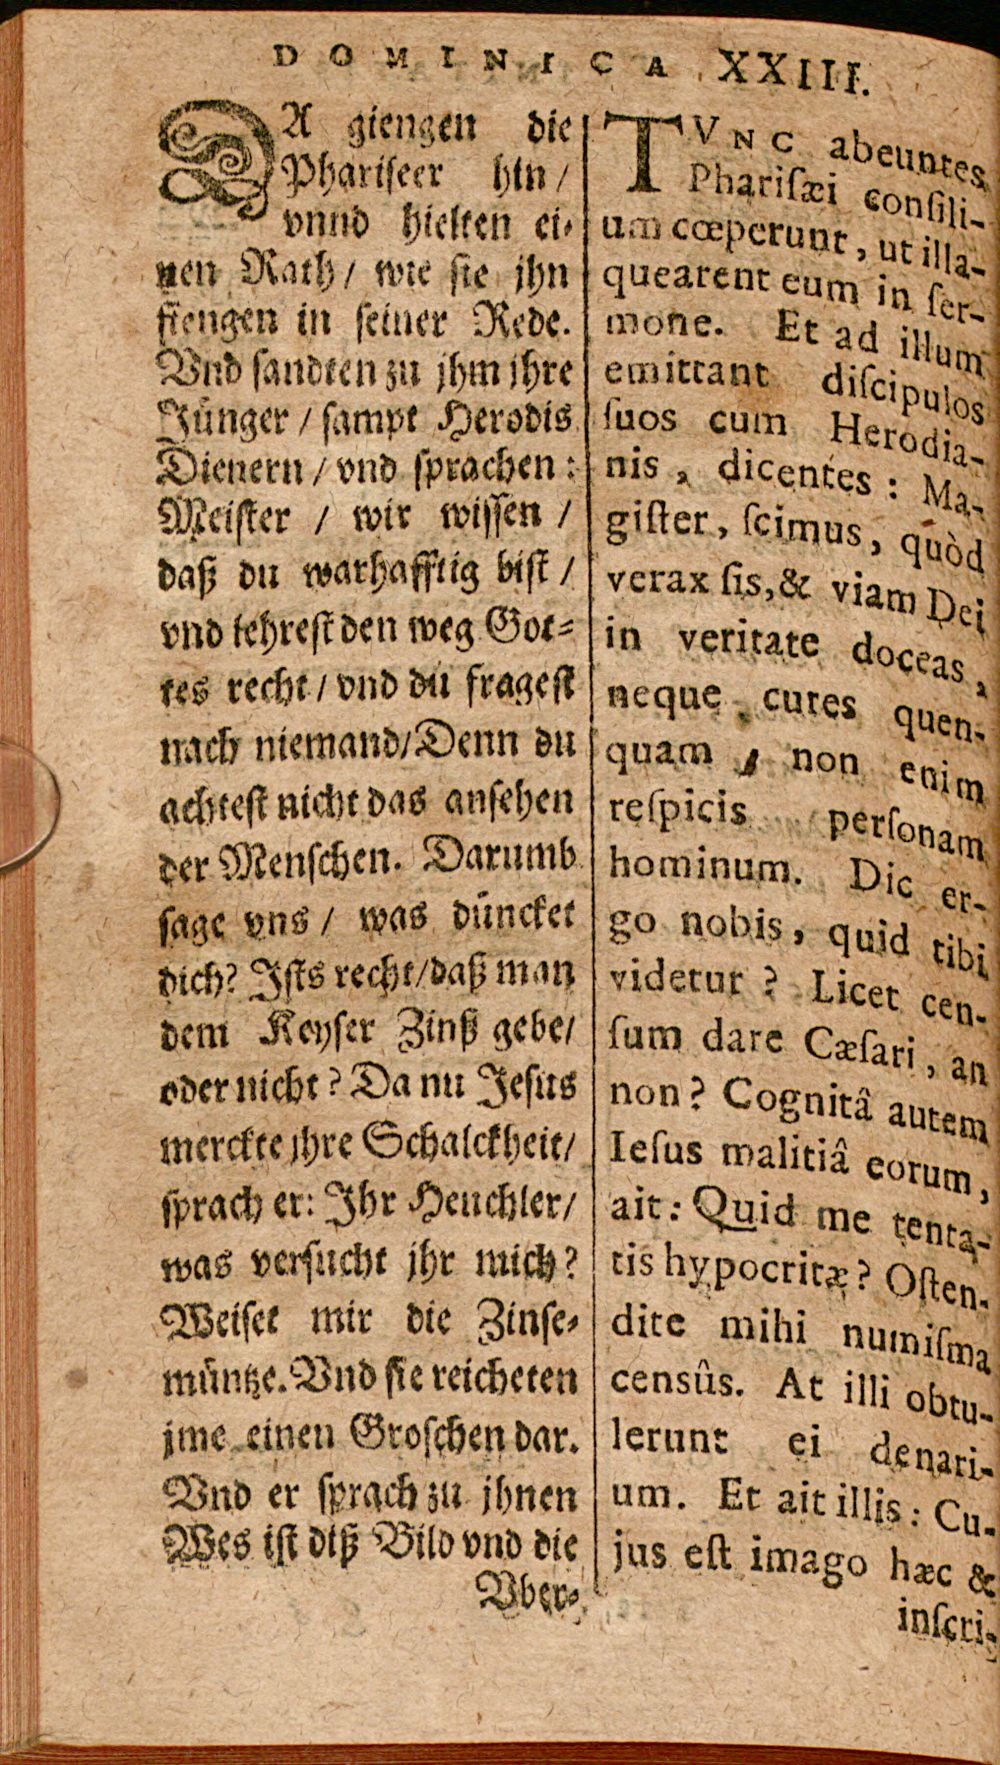 DOMINICA XXIII.
DA giengen die
Phariseer hin /
vnnd hielten ei-
nen Rath / wie sie jhn
fiengen in seiner Rede.
Vnd sandten zu jhm jhre
Jünger / sampt Herodis
Dienern / vnd sprachen:
Meister / wir wissen /
daß du warhafftig bist /
vnd lehrest den weg Got-
tes recht / vnd du fragest
nach niemand / Denn du
achtest nicht das ansehen
der Menschen. Darumb
sage vns / was düncket
dich? Ists recht / daß man
dem Keyser Zinß gebe /
oder nicht? Da nu Jesus
merckte jhre Schalckheit /
sprach er: Jhr Heuchler /
was versucht jhr mich?
Weiset mir die Zinse-
müntze. Vnd sie reicheten
jme einen Groschen dar.
Vnd er sprach zu jhnen
Wes ist diß Bild vnd die
Vber-
TVNC abeuntes
Phariſæi conſili-
um cœperunt, ut illa-
quearent eum in ſer-
mone. Et ad illum
emittant diſcipulos
ſuos cum Herodia-
nis, dicentes: Ma-
giſter, ſcimus, quòd
verax ſis, & viam Dei
in veritate doceas,
neque cures quen-
quam, non enim
reſpicis perſonam
hominum. Dic er-
go nobis, quid tibi
videtur? Licet cen-
ſum dare Cæſari, an
non? Cognitâ autem
Ieſus malitiâ eorum,
ait: Quid me tenta-
tis hypocritæ? Oſten-
dite mihi numiſma
censûs. At illi obtu-
lerunt ei denari-
um. Et ait illis: Cu-
jus eſt imago hæc &
inſcri-